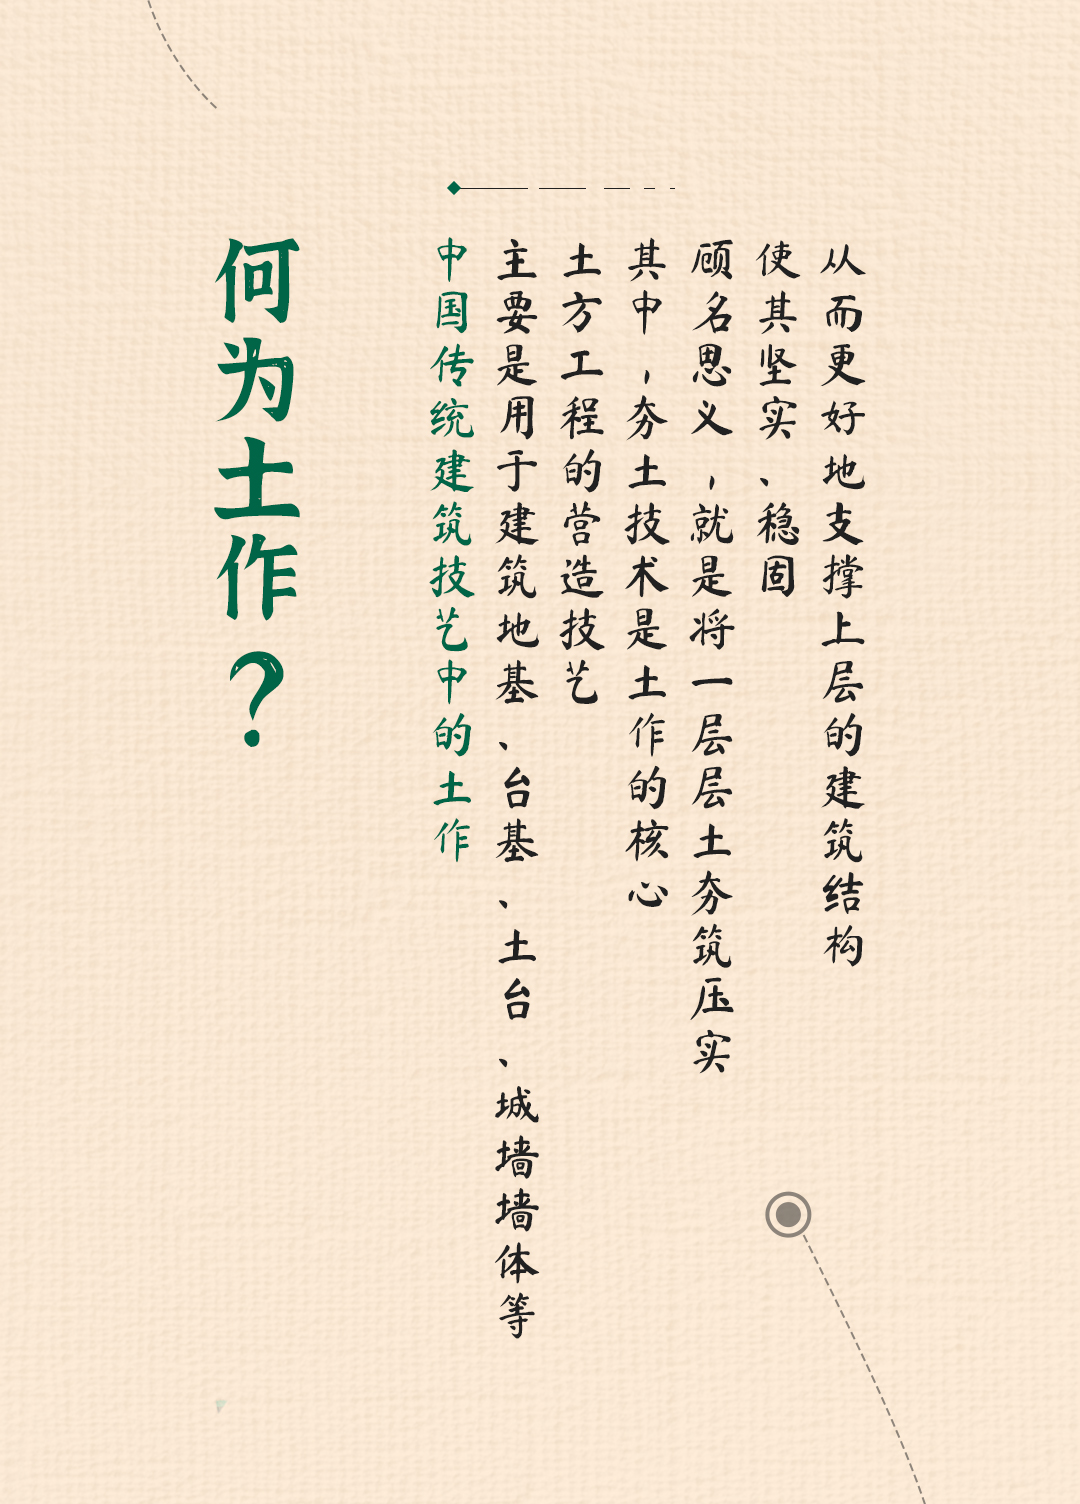 何为土作？
中国传统建筑技艺中的土作
主要是用于建筑地基、台基、土台、城墙墙体等
土方工程的营造技艺
其中，夯土技术是土作的核心
顾名思义，就是将一层层土夯筑压实
使其坚实、稳固
从而更好地支撑上层的建筑结构